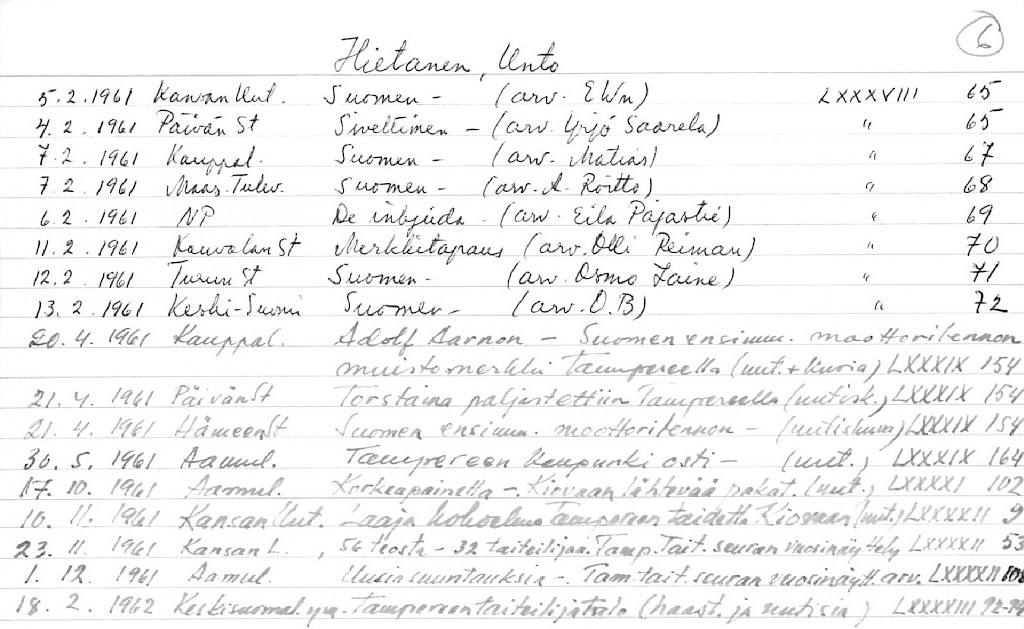 6
Hietanen, Unto
5.2.1961 Kansan Uut. Suomen - (arv. EWn) LXXXVIII 65
4.2.1961 Päivän St Siveltimen - (arv. Yrjö Saarela) " 65
7.2.1961 Kauppal. Suomen - (arv. Matias) " 67
7.2.1961 Maas. Tulev. Suomen - (arv. A. Röitto) " 68
6.2.1961 NP De inbjuda - (arv. Eila Pajastie) " 69
11.2.1961 Kouvolan St Merkkitapaus (arv. Olli Reiman) " 70
12.2.1961 Turun St Suomen - (arv. Osmo Laine) " 71
13.2.1961 Keski-Suomi Suomen - (arv. O.B) " 72
20.4.1961 Kauppal. Adolf Aarnon - Suomen ensimm. moottorilennon
muistomerkki Tampereella (uut. + kuvia) LXXXIX 154
21.4.1961 Päivän St Torstaina paljastettiin Tampereella (uutisk.) LXXXIX 154
21.4.1961 Hämeen St Suomen ensimm. moottorilennon - (uutiskuva) LXXXIX 154
30.5.1961 Aamul. Tampereen kaupunki osti - (uut.) LXXXIX 164
17.10.1961 Aamul. Korkeapainetta -. Kiovaan lähtevää pakat. (uut.) LXXXXI 102
10.11.1961 Kansan Uut. Laaja kokoelma Tampereen taidetta Kiovaan (uut.) LXXXXII 9
23.11.1961 Kansan L. , 56 teosta - 32 taiteilijaa. Tamp. Tait. seuran vuosinäyttely LXXXXII 53
1.12.1961 Aamul. Uusia suuntauksia -. Tam. tait. seuran vuosinäytt. arv. LXXXXII 108
18.2.1962 Keskisuomal. ym. Tampereen taiteilijatalo (haast. ja uutisia) LXXXXIII 92-94